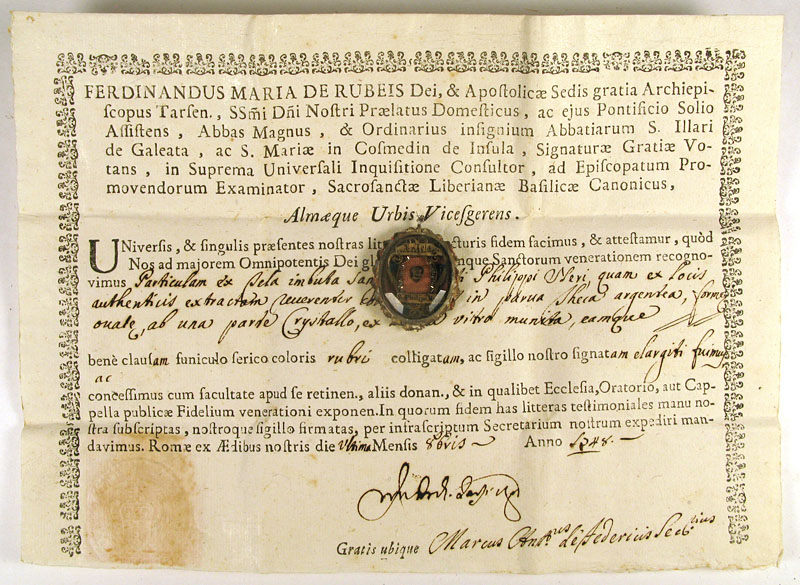 FERDINANDUS MARIA DE RUBEIS Dei, & Apostolicæ Sedis gratia Archiepi-
scopus Tarsen., SSm̃i Dñi Nostri Prælatus Domesticus, ac ejus Pontificio Solio
Assistens, Abbas Magnus, & Ordinarius insignium Abbatiarum S. Illari
de Galeata, ac S. Mariæ in Cosmedin de Insula, Signaturæ Gratiæ Vo-
tans, in Suprema Universali Inquisitione Consultor, ad Episcopatum Pro-
movendorum Examinator, Sacrosanctæ Liberianæ Basilicæ Canonicus,
Almæque Urbis Vicesgerens.
UNiversis, & singulis præsentes nostras lit cturis fidem facimus, & attestamur, quòd
Nos ad majorem Omnipotentis Dei gl que Sanctorum venerationem recogno-
vimus Particulam ex Tela imbuta San Philippi Neri quam ex locis
authenticis extractam reverenter in parva theca argentea, formæ
ovalę, ab una parte Crystallo, ex vitro munita, eamque
benè clausam funiculo serico coloris rubri colligatam, ac sigillo nostro signatam elargiti fuimus
ac
concessimus cum facultate apud se retinen., aliis donan., & in qualibet Ecclesia, Oratorio, aut Cap-
pella publicæ Fidelium venerationi exponen. In quorum fidem has litteras testimoniales manu no-
stra subscriptas, nostroque sigillo firmatas, per infrascriptum Secretarium nostrum expediri man-
davimus. Romæ ex Ædibus nostris die ultima Mensis 8bris Anno 1748.
Gratis ubique Marcus de Federicis